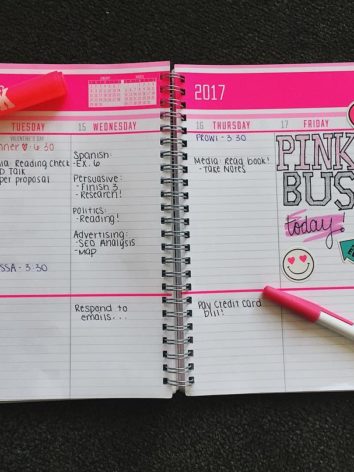 2017
TUESDAY
VALENTINE'S DAY
6:30
Reading Check
Talk
proposal
3:30
15 WEDNESDAY
Spanish:
- EX. 6
Persuasive:
- Finish 3
- Research!
Politics:
- Reading!
Advertising:
- SEO Analysis
- Map
Respond to
emails...
16 THURSDAY
PROWL - 3:30
Media: Read book!
- Take Notes
Pay Credit Card
bill!
17 FRIDAY
PINK
BUS
today!